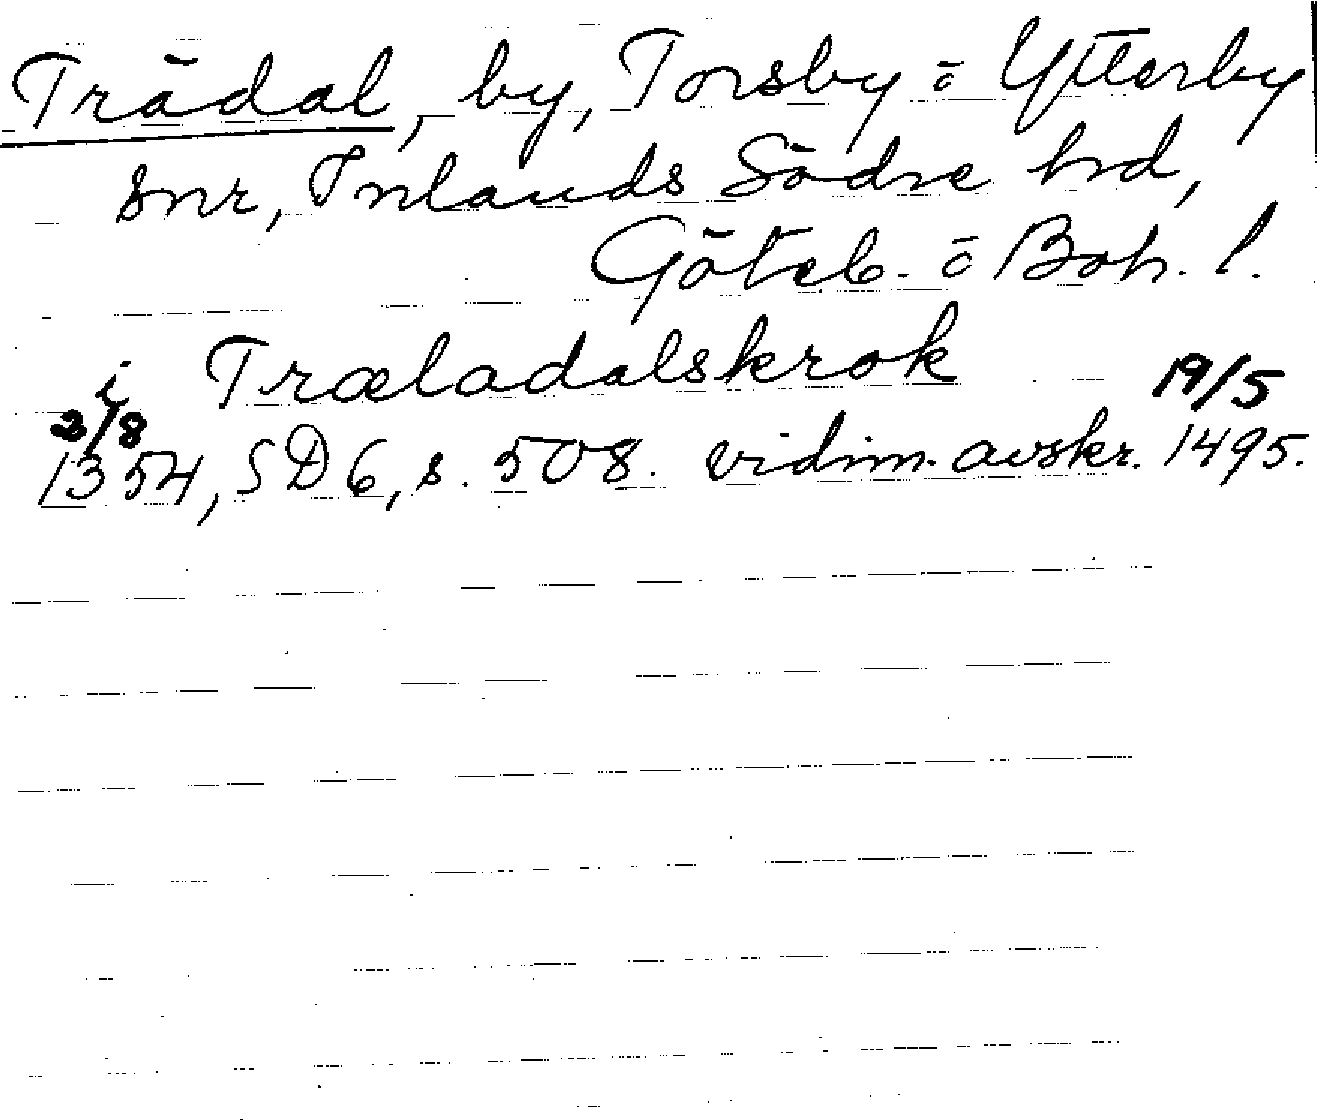 Trädal, by, Torsby o Ytterby
snr, Inlands Södre hd,
Göteb. o Boh. l.
i Træladalskrok
2/8 1354, SD 6, s. 508. vidim. avskr. 19/5 1495.